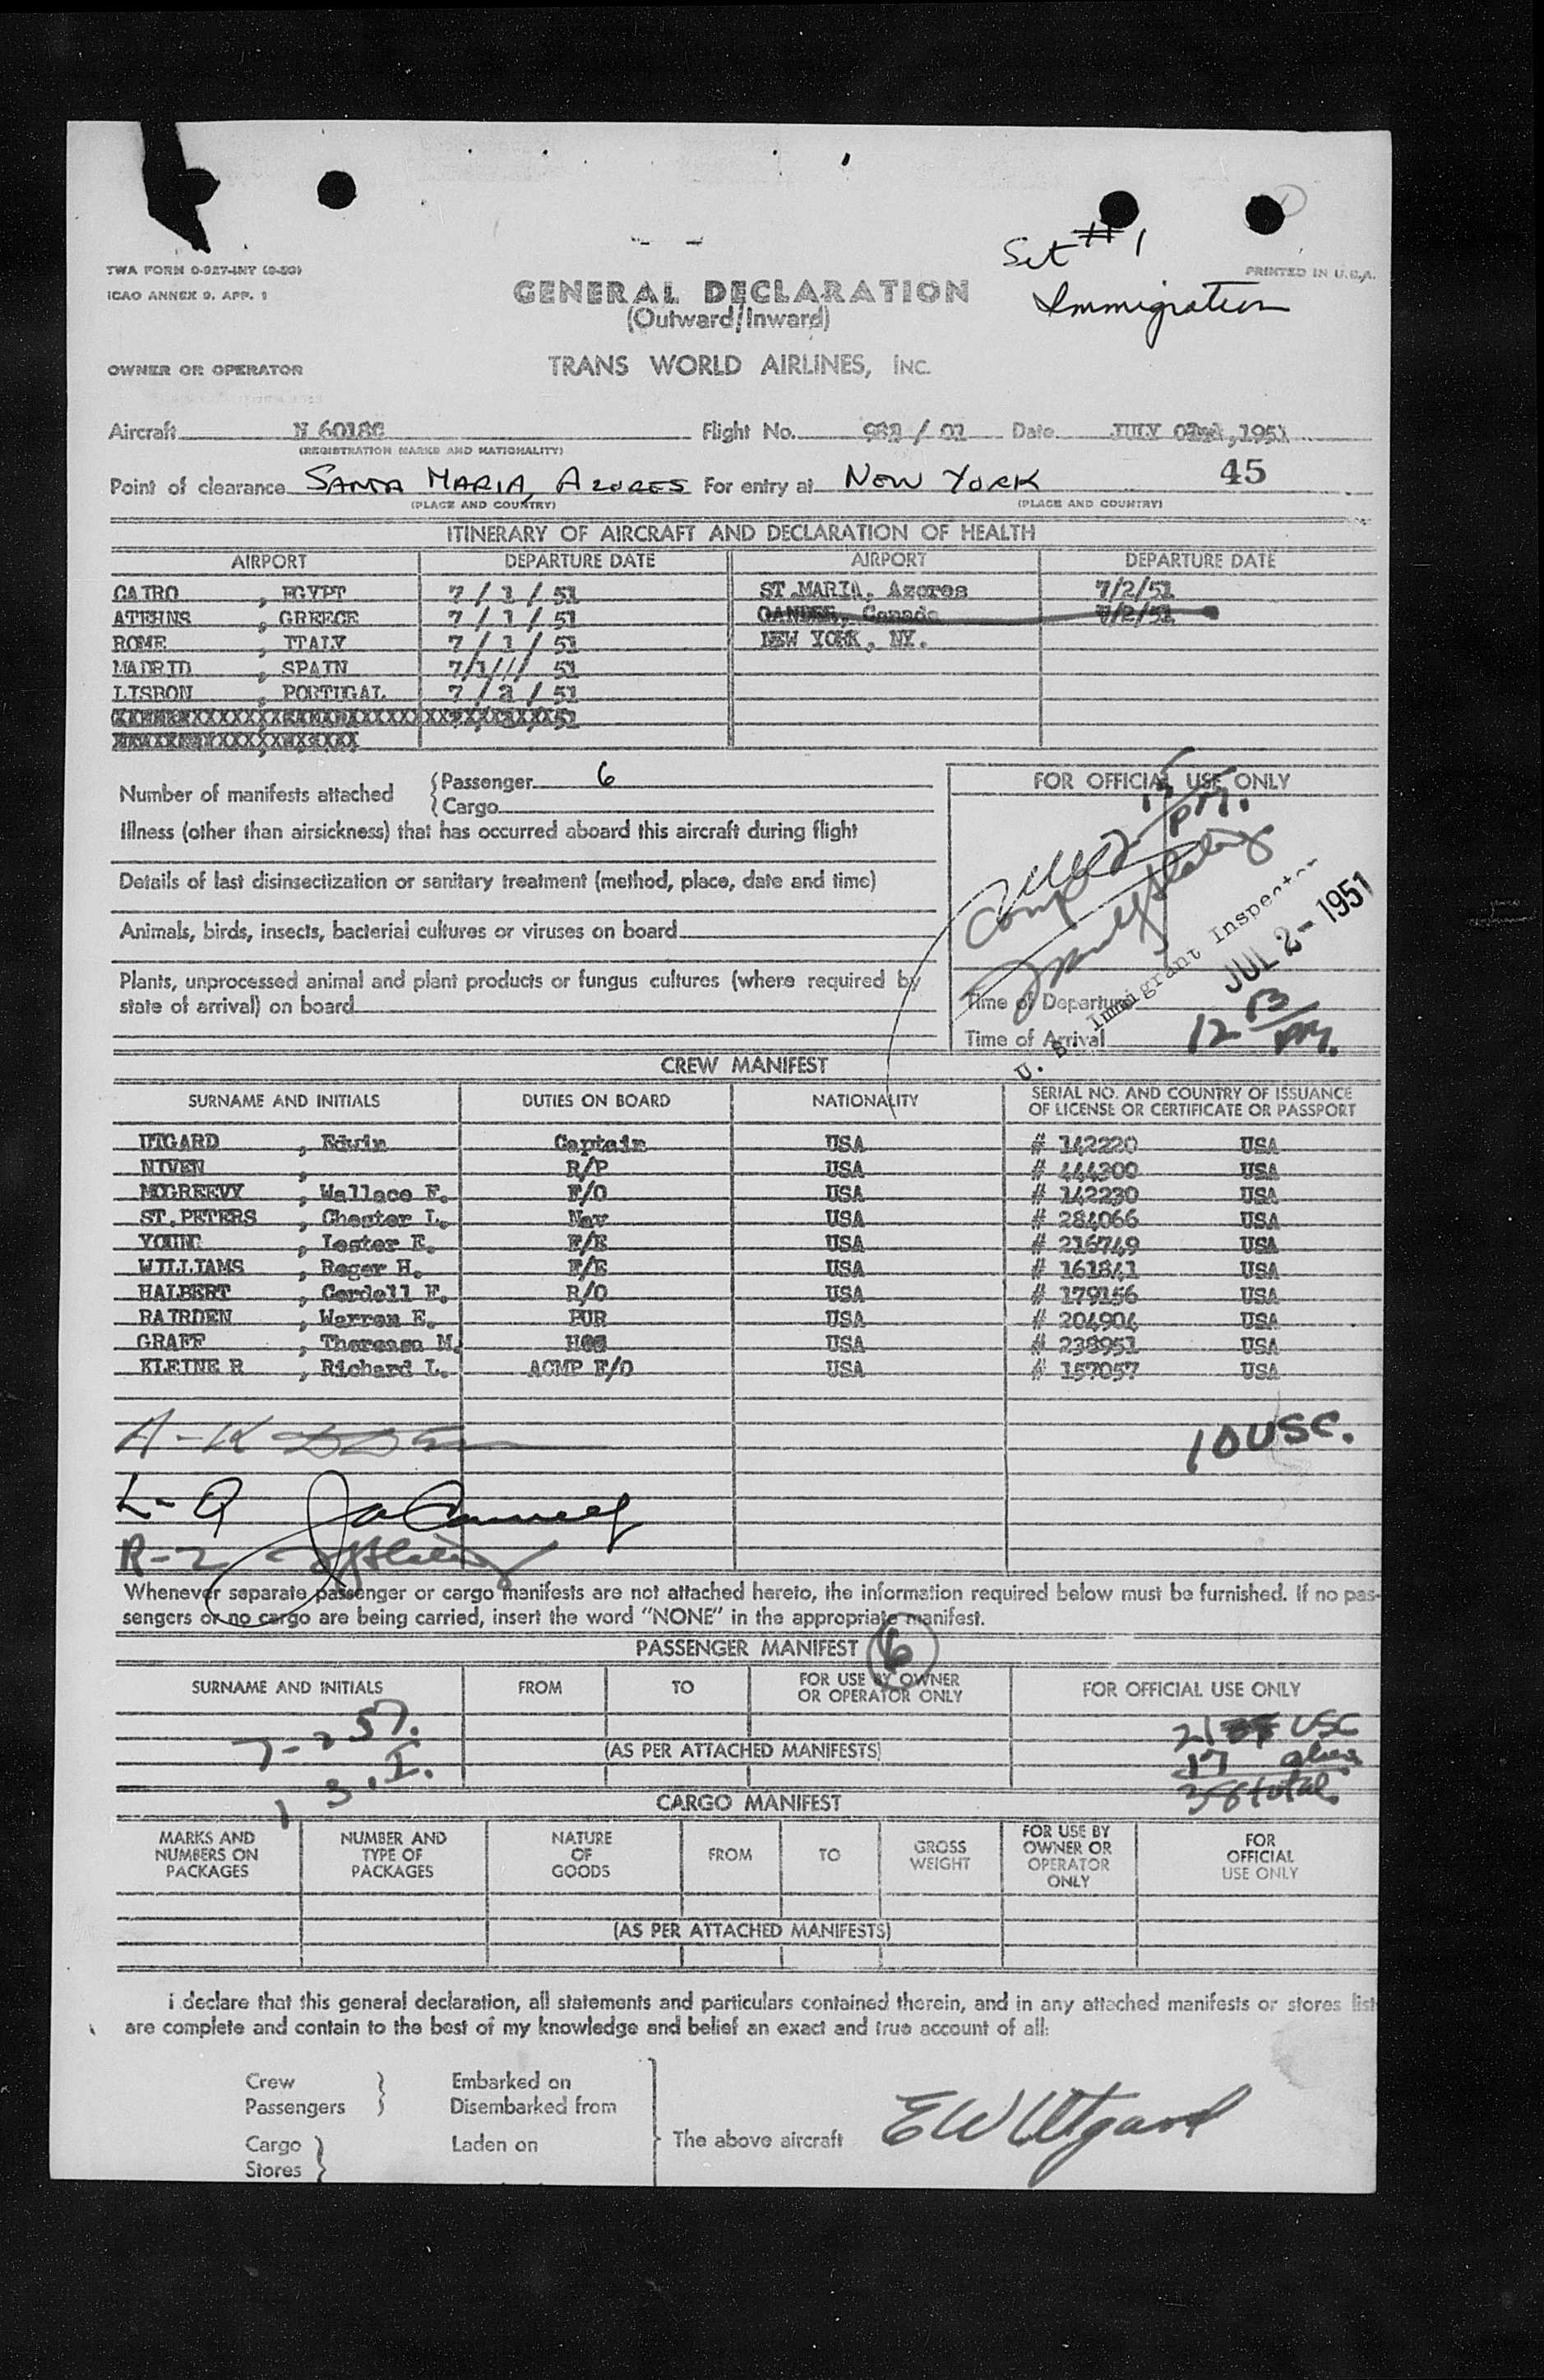 Set #1
TWA FORM O-927-INT (9-50)
PRINTED IN U.S.A.
ICAO ANNEX 9, APP. 1
GENERAL DECLARATION
Immigration
(Outward/Inward)
OWNER OR OPERATOR
TRANS WORLD AIRLINES, INC.
Aircraft N 6018C Flight No. / 01 Date JULY, 1951
(REGISTRATION MARKS AND NATIONALITY)
45
Point of clearance SANTA MARIA, AZORES For entry at NEW YORK
(PLACE AND COUNTRY) (PLACE AND COUNTRY)
ITINERARY OF AIRCRAFT AND DECLARATION OF HEALTH
AIRPORT DEPARTURE DATE AIRPORT DEPARTURE DATE
CAIRO , EGYPT 7 / 1 / 51 ST.MARIA, Azores 7/2/51
ATHENS , GREECE 7 / 1 / 51 GANDER, Canada 7/2/51
ROME , ITALY 7 / 1 / 51 NEW YORK, NY.
MADRID , SPAIN 7/1// 51
LISBON , PORTUGAL 7 / 2 / 51
Number of manifests attached { Passenger 6
{ Cargo
FOR OFFICIAL USE ONLY
Illness (other than airsickness) that has occurred aboard this aircraft during flight
Details of last disinsectization or sanitary treatment (method, place, date and time)
Animals, birds, insects, bacterial cultures or viruses on board
Plants, unprocessed animal and plant products or fungus cultures (where required by
state of arrival) on board
U. S. Immigrant Inspector
JUL 2- 1951
Time of Departure
Time of Arrival 12 13 PM.
CREW MANIFEST
SURNAME AND INITIALS DUTIES ON BOARD NATIONALITY SERIAL NO. AND COUNTRY OF ISSUANCE
OF LICENSE OR CERTIFICATE OR PASSPORT
UTGARD , Edwin Captain USA # 142220 USA
NIVEN , R/P USA # 444300 USA
MCGREEVY , Wallace F. F/O USA # 142230 USA
ST.PETERS , Chester L. Nav USA # 284066 USA
YOUNG , Lester E. F/E USA # 216749 USA
WILLIAMS , Roger H. F/E USA # 161841 USA
HALBERT , Cordell F. R/O USA # 179156 USA
BAIRDEN , Warren E. PUR USA # 204904 USA
GRAFF , Thereasa M. USA # 238951 USA
KLEINE R , Richard L. ACMP F/O USA # 157057 USA
A-K
10 USC.
L-Q
R-Z
Whenever separate passenger or cargo manifests are not attached hereto, the information required below must be furnished. If no pas-
sengers or no cargo are being carried, insert the word "NONE" in the appropriate manifest.
PASSENGER MANIFEST 6
SURNAME AND INITIALS FROM TO FOR USE BY OWNER
OR OPERATOR ONLY FOR OFFICIAL USE ONLY
21 USC
(AS PER ATTACHED MANIFESTS)
17 aliens
38 total.
CARGO MANIFEST
MARKS AND
NUMBERS ON
PACKAGES NUMBER AND
TYPE OF
PACKAGES NATURE
OF
GOODS FROM TO GROSS
WEIGHT FOR USE BY
OWNER OR
OPERATOR
ONLY FOR
OFFICIAL
USE ONLY
(AS PER ATTACHED MANIFESTS)
I declare that this general declaration, all statements and particulars contained therein, and in any attached manifests or stores list
are complete and contain to the best of my knowledge and belief an exact and true account of all:
Crew } Embarked on
Passengers } Disembarked from
Cargo } Laden on
Stores }
The above aircraft E W Utgard